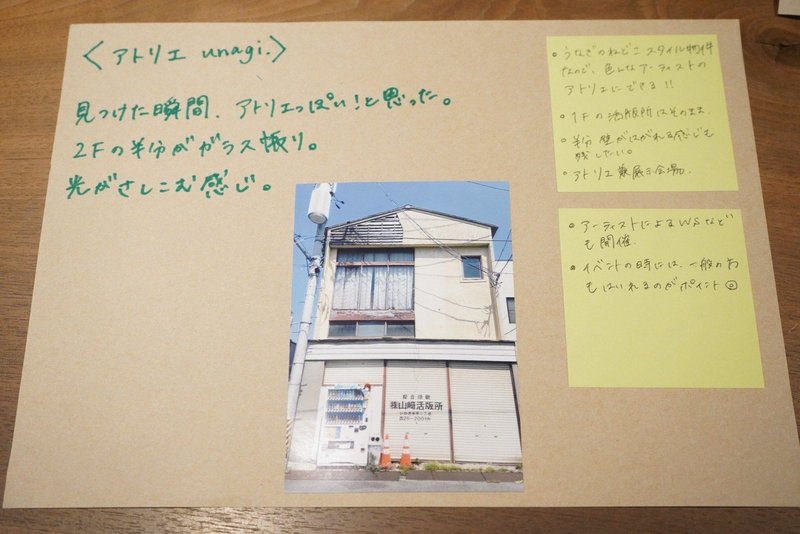 〈アトリエ unagi.〉
見つけた瞬間、アトリエっぽい!と思った。
2Fの半分がガラス張り。
光がさしこむ感じ。
・うなぎのねどこスタイル物件
なので、色んなアーティストの
アトリエにできる!!
・1Fの活版所はそのまま。
・半分壁がはがれる感じも
残したい。
・アトリエ兼展示会場。
・アーティストによるWSなど
も開催.
・イベントの時には、一般の方
もはいれるのがポイント◎
総合印刷
㈱山﨑活版所